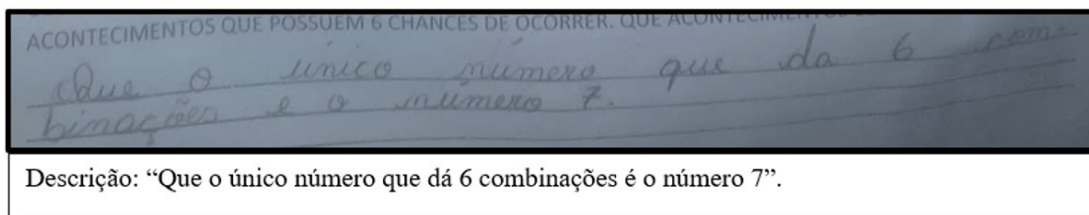 ACONTECIMENTOS QUE POSSUEM 6 CHANCES DE OCORRER. QUE
Que o único número que da 6 com-
binações e o número 7.
Descrição: “Que o único número que dá 6 combinações é o número 7”.